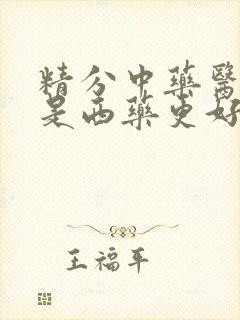 精分中藥醫
是西藥更好
王福平